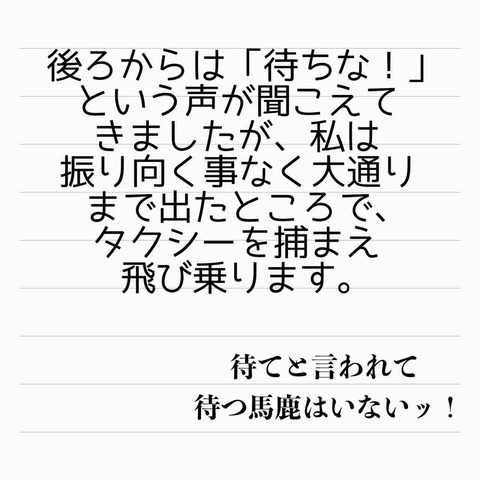 後ろからは「待ちな！」
という声が聞こえて
きましたが、私は
振り向く事なく大通り
まで出たところで、
タクシーを捕まえ
飛び乗ります。
待てと言われて
待つ馬鹿はいないッ！